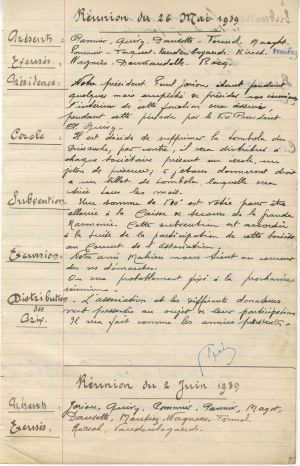 Réunion du 26 Mai 1939
Présents : Pannier, Quiry, Dausette, Magot
Pommier
Excusés : Wagnies
Présidence : Notre président Paul Jorion étant pendant
quelques mois empêché de présider nos réunions
l'intérim de cette fonction sera assuré
pendant cette période par le Vice Président
Quiry
Cercle : Il est décidé de supprimer la tombola du
dimanche, par contre, il sera distribué à
chaque sociétaire présent au cercle, un
jeton de présence ; 5 jetons donneront droit
à un billet de tombola laquelle sera
tirée tous les mois.
Subvention : Une somme de est votée pour être
allouée à la Caisse de secours de la grande
Harmonie. Cette subvention est accordée
à la suite de la participation de cette société
au Concert de l'association.
Excursion : Notre ami Mahieu nous tient au courant
de ses démarches.
On sera probablement fixé à la prochaine
réunion.
Distribution des Prix : L'association et les différents donateurs
sont pressentis au sujet de leur participation
Il sera fait comme les années précédentes.
Réunion du 2 Juin 1939
Présents : Jorion, Quiry, Pommier, Pannier, Magot
Dausette, Wagnies
Excusés : Hirsch, Vandenbogaerde